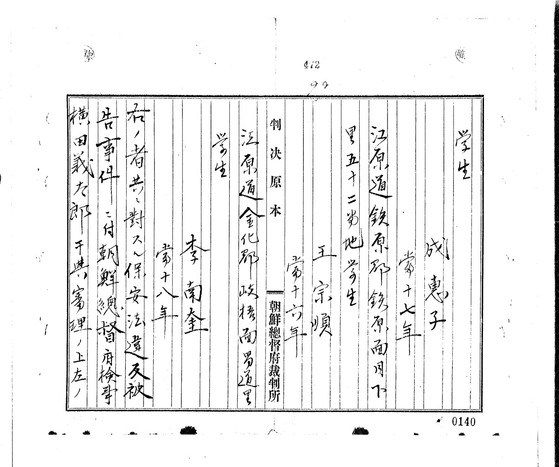 412
99
学生
成惠子
当十七年
江原道鉄原郡鉄原面月下
里五十二番地学生
王宗順
当十六年
判決原本
朝鮮總督府裁判所
江原道金化郡岐梧面昌道里
学生
李南奎
当十八年
右ノ者共ニ對スル保安法違反被
告事件ニ付朝鮮總督府檢事
横田義太郎干與審理ノ上左ノ
0140